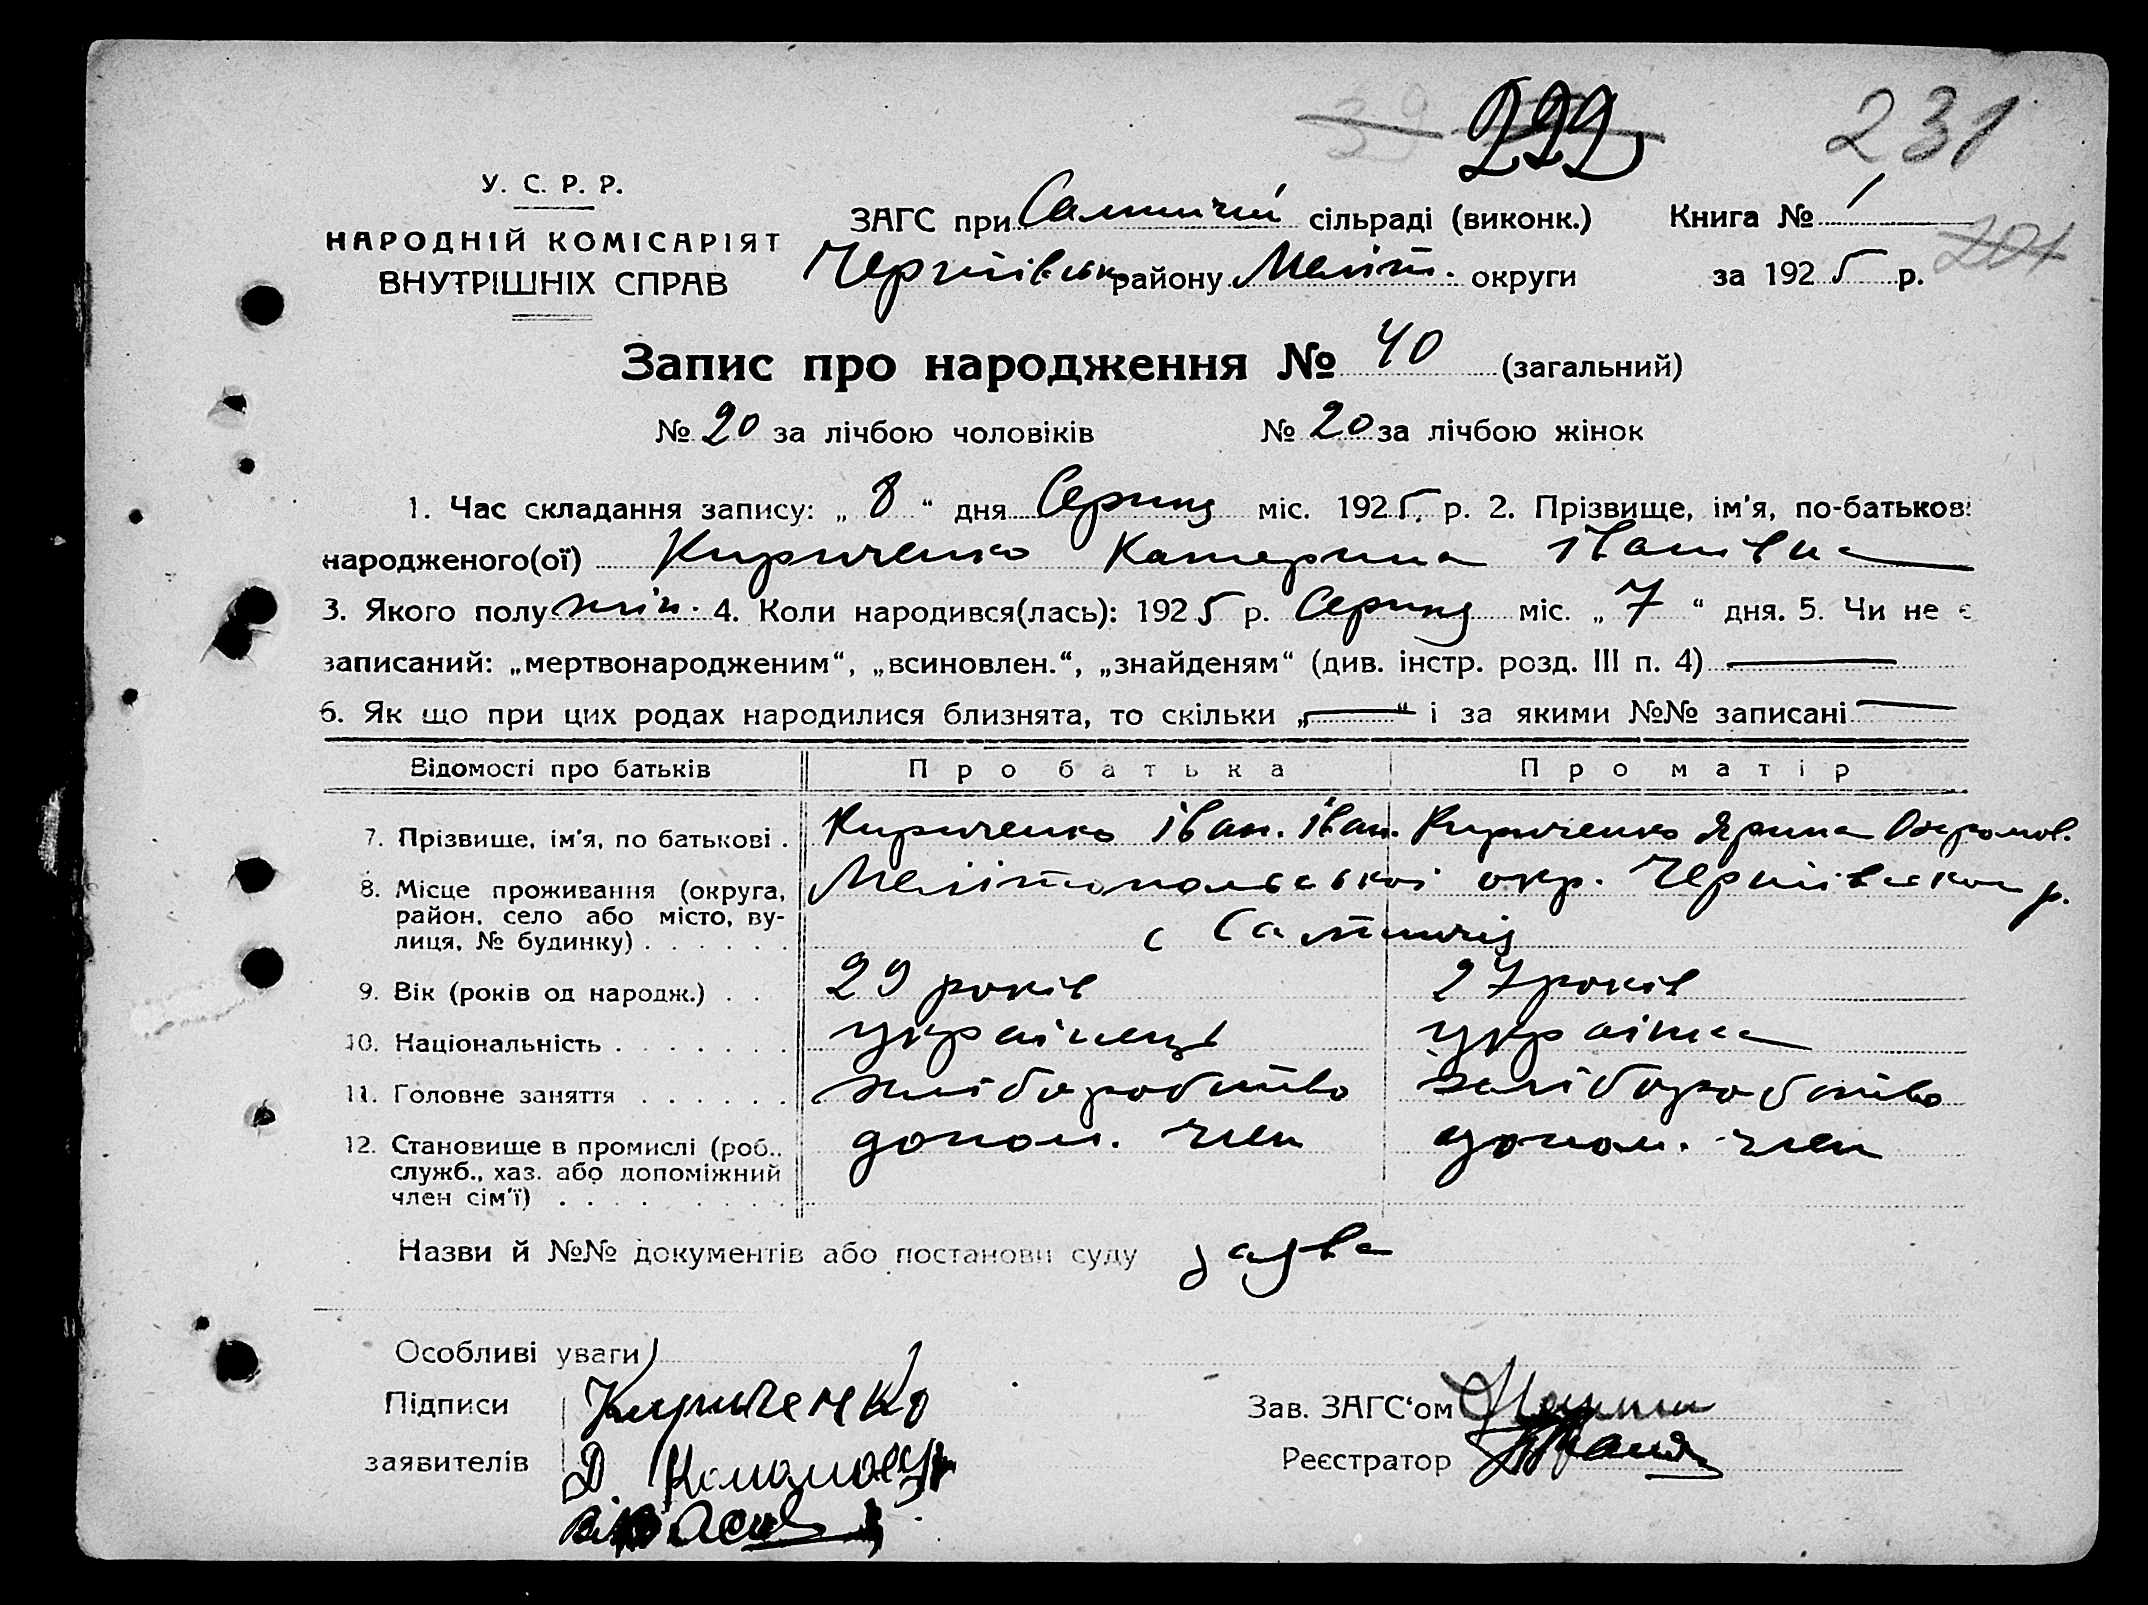 39 222 231
У. С. Р. Р.
НАРОДНІЙ КОМІСАРІЯТ
ВНУТРІШНІХ СПРАВ
ЗАГС при сільраді (виконк.) Книга № 1
Чернігівськ району Меліт. округи за 1925 р. 201
Запис про народження № 40 (загальний)
№ 20 за лічбою чоловіків № 20 за лічбою жінок
1. Час складання запису: „ 8 “ дня Серпня міс. 1925 р. 2. Прізвище, ім'я, по-батькові
народженого(ої) Кириченко Катерина Іванівна
3. Якого полу жін. 4. Коли народився(лась): 1925 р. Серпня міс. „ 7 “ дня. 5. Чи не є
записаний: „мертвонародженим“, „всиновлен.“, „знайденям“ (див. інстр. розд. III п. 4)
6. Як що при цих родах народилися близнята, то скільки „ “ і за якими №№ записані
Відомості про батьків Про батька Про матір
7. Прізвище, ім'я, по батькові . Кириченко Іван. Іван. Кириченко Ярина
8. Місце проживання (округа, район, село або місто, вулиця, № будинку) . . . . . . Мелітопольської окр. Чернігівської р.
с
9. Вік (років од народж.) . . 29 років 27 років
10. Національність . . . . . . . українець українка
11. Головне заняття . . . . . . хліборобство хліборобство
12. Становище в промислі (роб., служб., хаз. або допоміжний член сім'ї) . . . . . . . . допом. член допом. член
Назви й №№ документів або постанови суду заява
Особливі уваги
Підписи Кириченко Зав. ЗАГС‘ом
заявителів Д Реєстратор